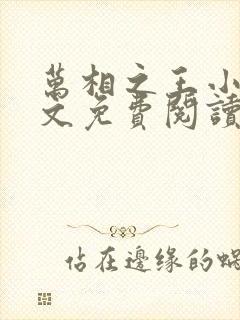 萬相之王小
文免費閱讀
佔在邊缘的蝸